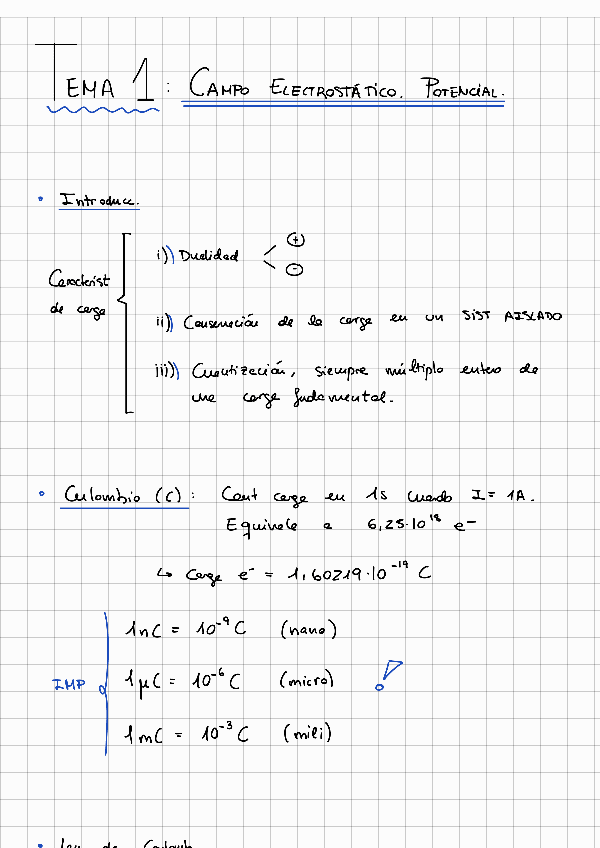 TEMA 1: CAMPO ELECTROSTÁTICO. POTENCIAL.
• Introducc.
Característ
de carga
i)) Dualidad < + -
ii)) Conservación de la carga en un SIST AISLADO
iii)) Cuantización, siempre múltiplo entero de
una carga fundamental.
• Culombio (C): Cant carga en 1s cuando I = 1A.
Equivale a 6,25·10¹⁸ e⁻
↳ Carga e⁻ = 1,60219·10⁻¹⁹ C
IMP
1nC = 10⁻⁹ C (nano)
1μC = 10⁻⁶ C (micro)
1mC = 10⁻³ C (mili)
!